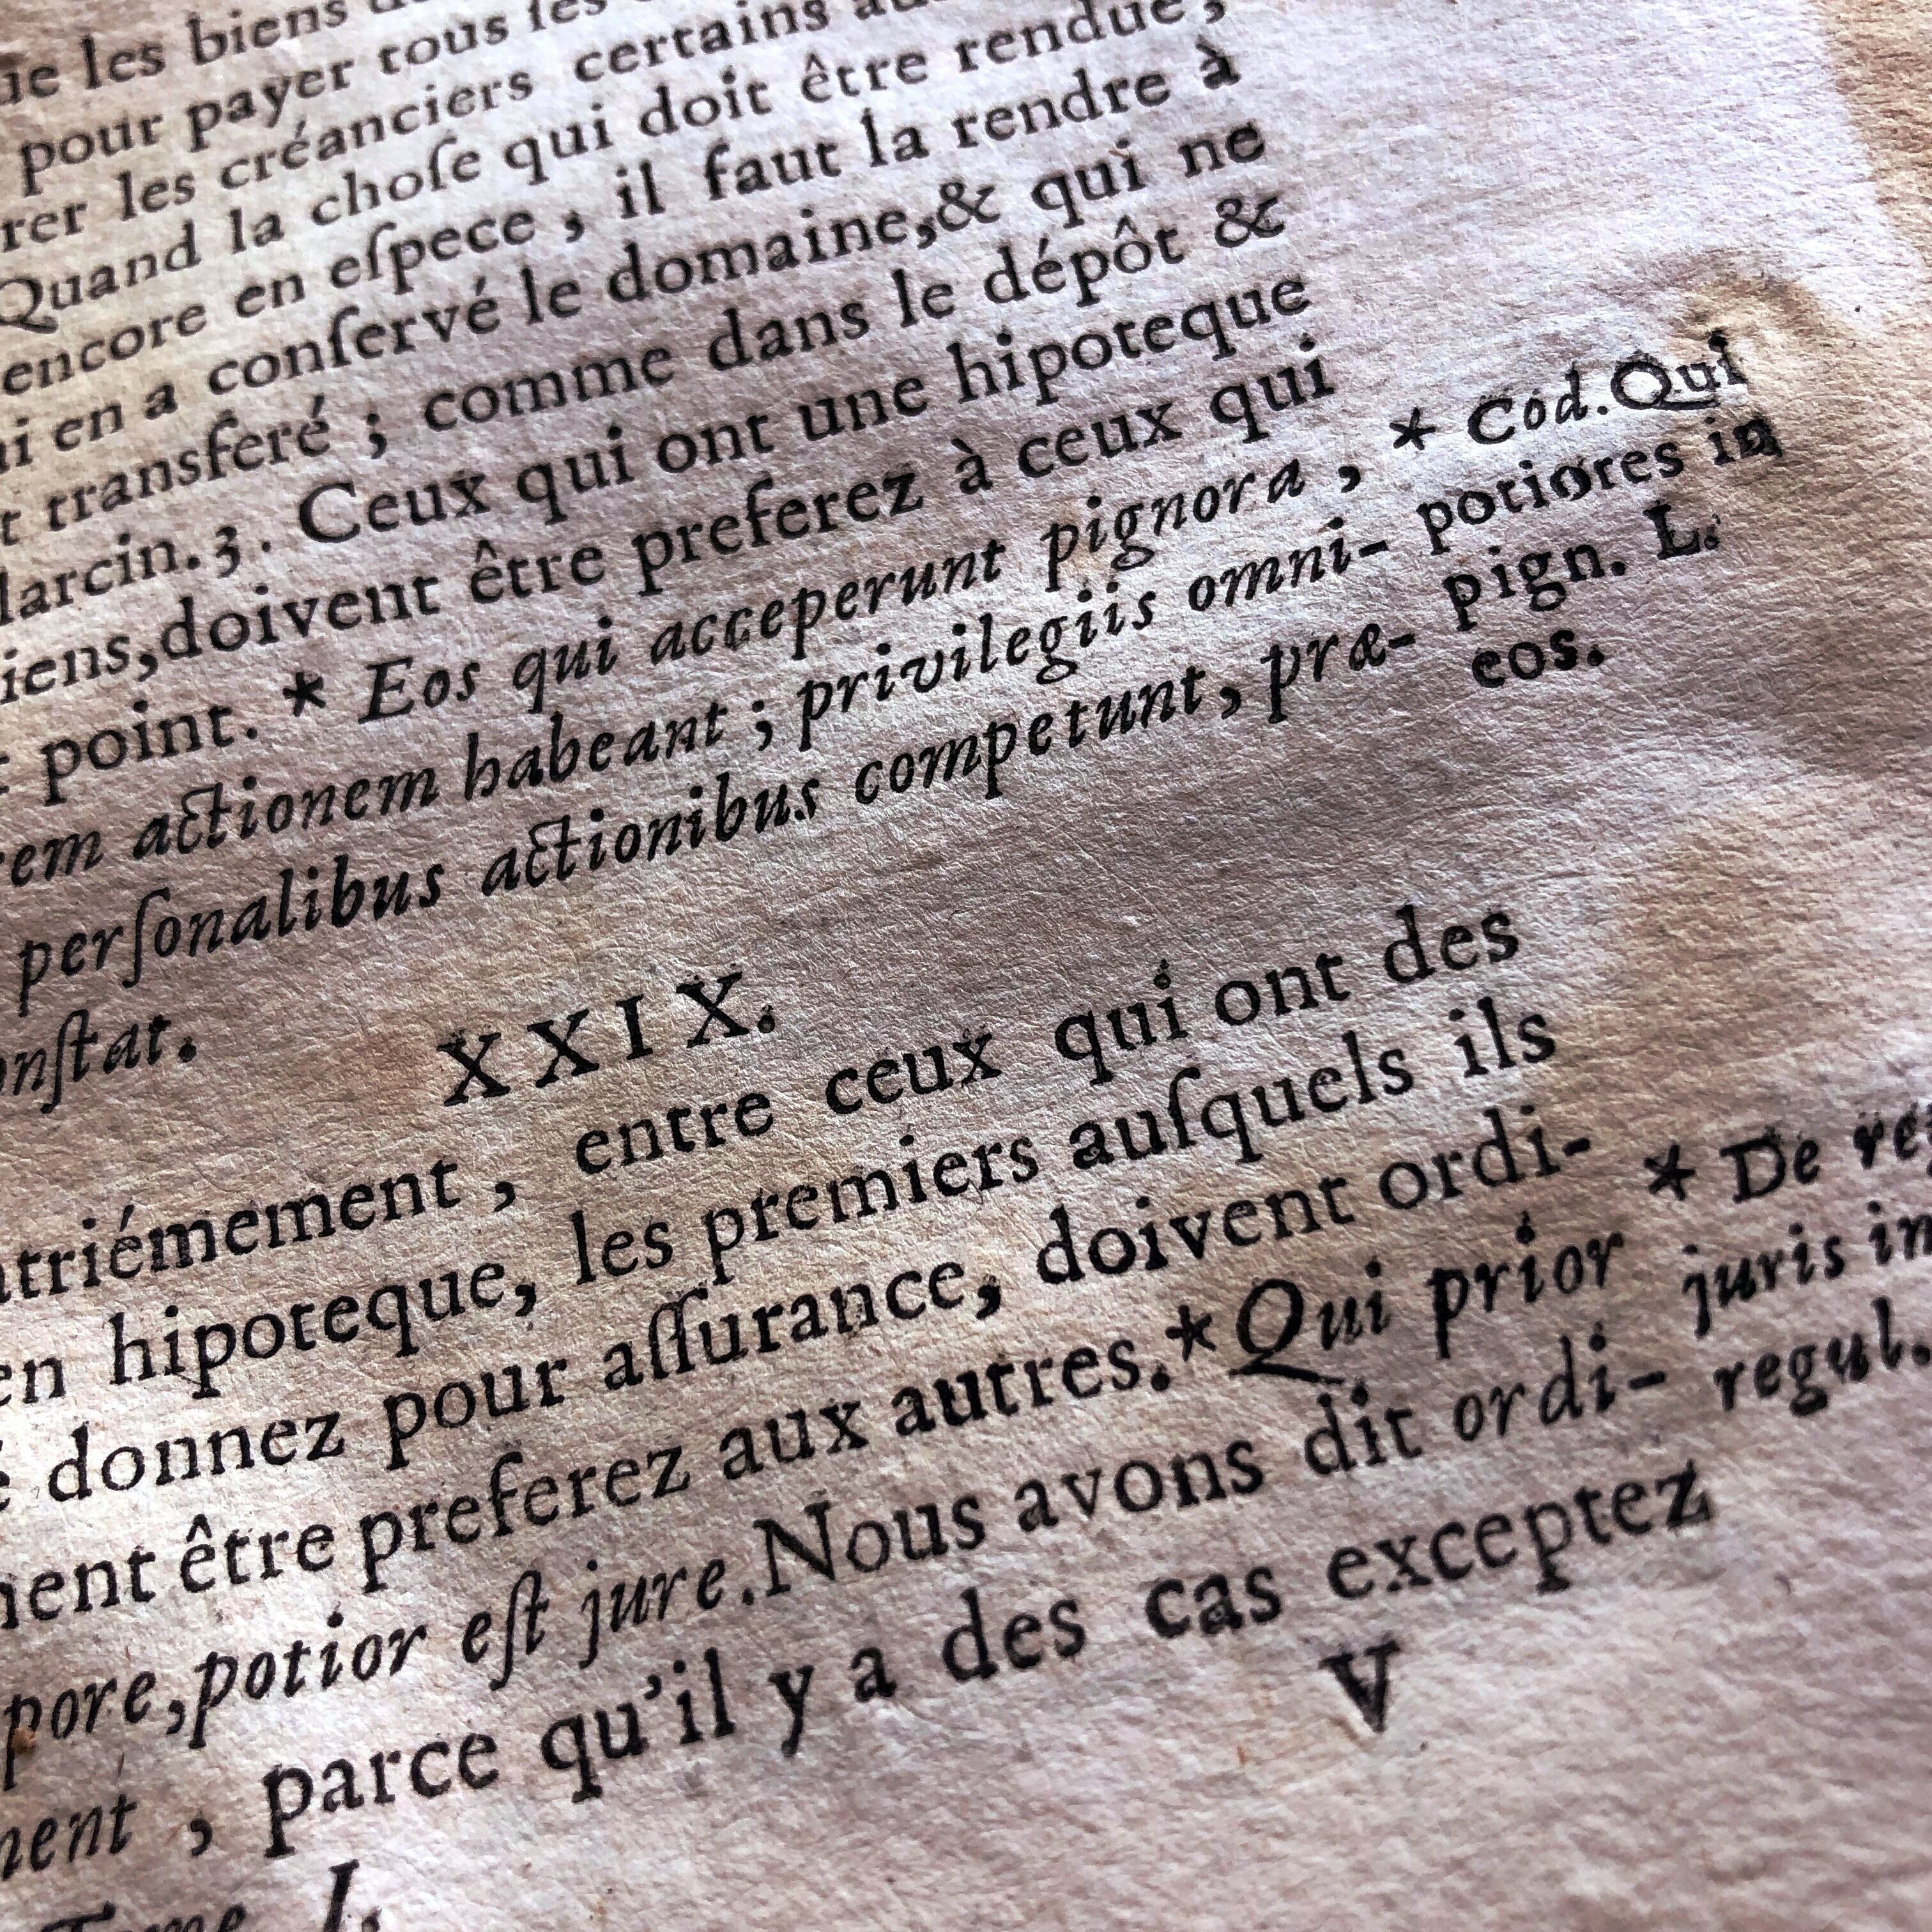 les biens
pour payer tous les
les créanciers certains
Quand la choſe qui doit être rendue,
encore en eſpece, il faut la rendre à
en a conſervé le domaine,& qui ne
transferé; comme dans le dépôt &
larcin. 3. Ceux qui ont une hipoteque
doivent être preferez à ceux qui
point. * Eos qui acceperunt pignora, * Cod. Qui
rem actionem habeant; privilegiis omni- potiores in
perſonalibus actionibus competunt, præ- pign. L.
eos.
onſtat.
XXIX.
atriémement, entre ceux qui ont des
en hipoteque, les premiers auſquels ils
donnez pour aſſurance, doivent ordi-
ment être preferez aux autres.* Qui prior * De re
pore, potior eſt jure. Nous avons dit ordi- juris in
ment, parce qu'il y a des cas exceptez regul.
Tome I. V